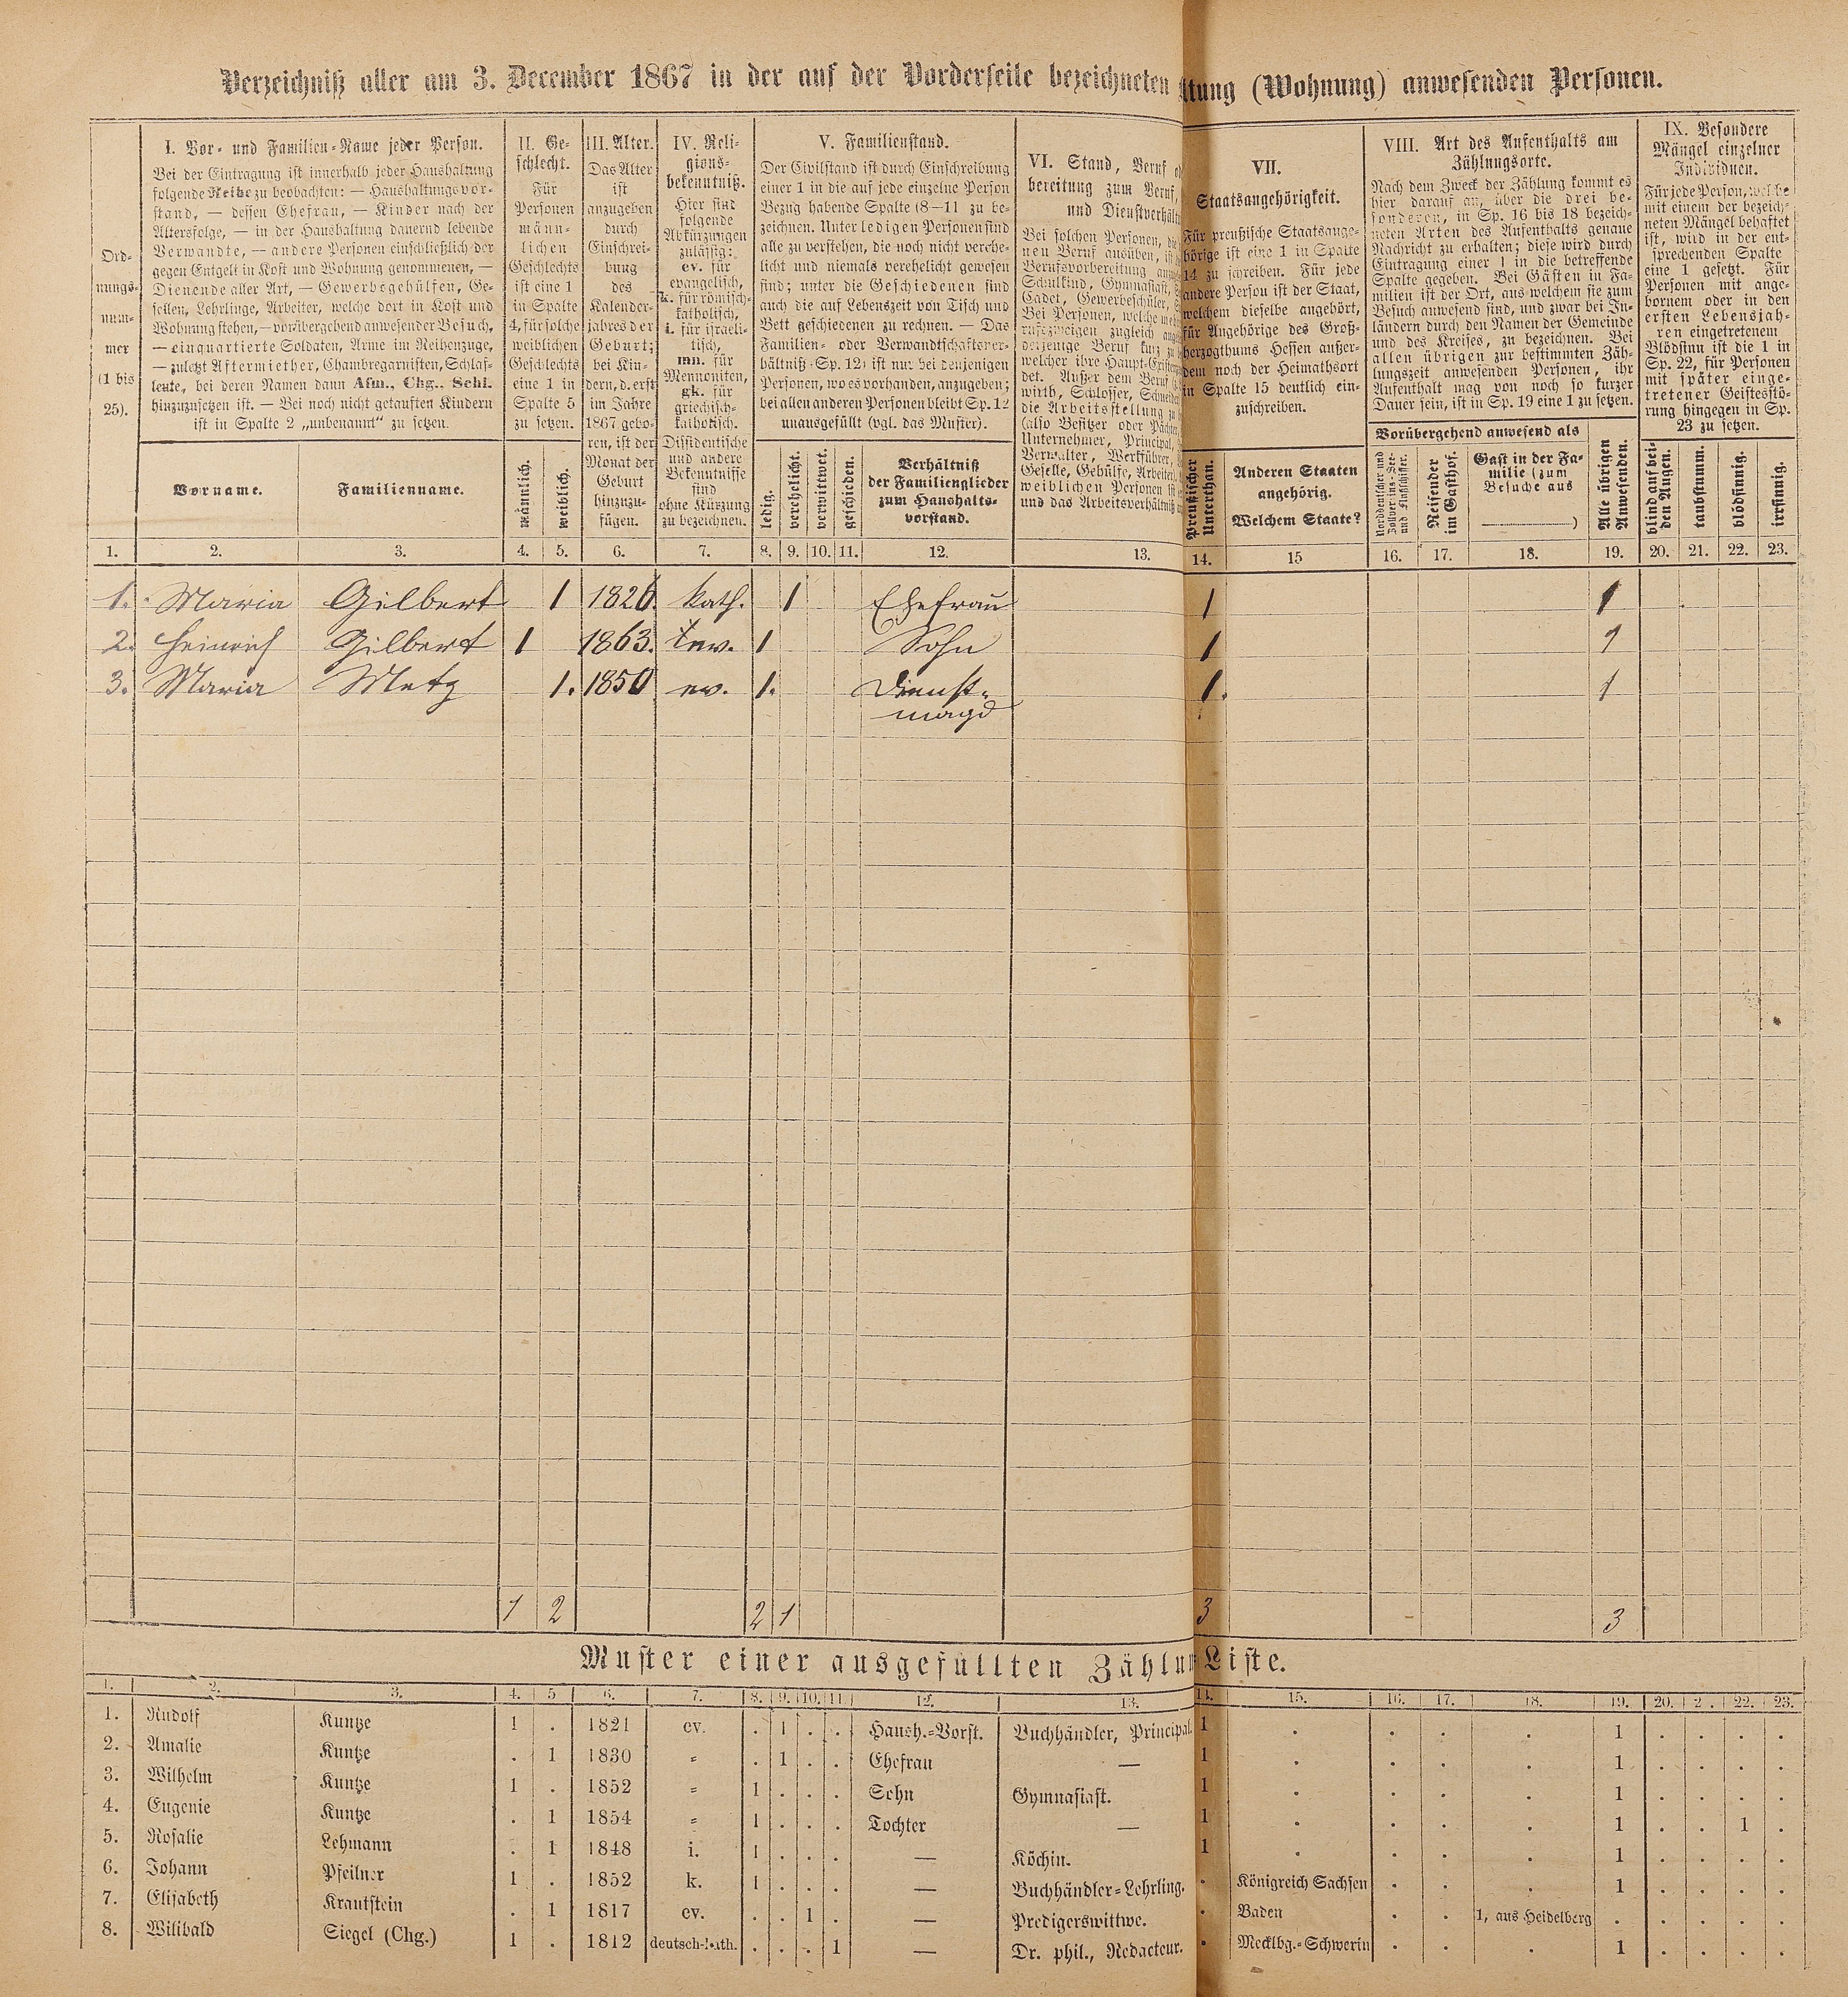 Verzeichniß aller am 3. December 1867 in der auf der Vorderseite bezeichneten
ltung (Wohnung) anwesenden Personen.
Ord-
nungs-
num-
mer
(1 bis
25).
I. Vor- und Familien-Name jeder Person.
Bei der Eintragung ist innerhalb jeder Haushaltung
folgende Reihe zu beobachten: — Haushaltungsvor-
stand, — dessen Ehefrau, — Kinder nach der
Altersfolge, — in der Haushaltung dauernd lebende
Verwandte, — andere Personen einschließlich der
gegen Entgelt in Kost und Wohnung genommenen, —
Dienende aller Art, — Gewerbsgehülfen, Ge-
sellen, Lehrlinge, Arbeiter, welche dort in Kost und
Wohnung stehen, — vorübergehend anwesender Besuch,
— einquartierte Soldaten, Arme im Reihenzuge,
— zuletzt Aftermiether, Chambregarnisten, Schlaf-
leute, bei deren Namen dann Afm., Chg., Schl.
hinzuzusetzen ist. — Bei noch nicht getauften Kindern
ist in Spalte 2 „unbenannt“ zu setzen.
Vorname.
Familienname.
II. Ge-
schlecht.
Für
Personen
männ-
lichen
Geschlechts
ist eine 1
in Spalte
4, für solche
weiblichen
Geschlechts
eine 1 in
Spalte 5
zu setzen.
männlich.
weiblich.
III. Alter.
Das Alter
ist
anzugeben
durch
Einschrei-
bung
des
Kalender-
jahres der
Geburt;
bei Kin-
dern, d. erst
im Jahre
1867 gebo-
ren, ist der
Monat der
Geburt
hinzuzu-
fügen.
IV. Reli-
gions-
bekenntniß.
Hier sind
folgende
Abkürzungen
zulässig:
ev. für
evangelisch,
k. für römisch-
katholisch,
i. für israeli-
tisch,
mn. für
Mennoniten,
gk. für
griechisch-
katholisch.
Dissidentische
und andere
Bekenntnisse
sind
ohne Kürzung
zu bezeichnen.
V. Familienstand.
Der Civilstand ist durch Einschreibung
einer 1 in die auf jede einzelne Person
Bezug habende Spalte (8—11 zu be-
zeichnen. Unter ledigen Personen sind
alle zu verstehen, die noch nicht verehe-
licht und niemals verehelicht gewesen
sind; unter die Geschiedenen sind
auch die auf Lebenszeit von Tisch und
Bett geschiedenen zu rechnen. — Das
Familien- oder Verwandtschaftsver-
hältniß (Sp. 12) ist nur bei denjenigen
Personen, wo es vorhanden, anzugeben;
bei allen anderen Personen bleibt Sp. 12
unausgefüllt (vgl. das Muster).
ledig.
verehelicht.
verwittwet.
geschieden.
Verhältniß
der Familienglieder
zum Haushalts-
vorstand.
VI. Stand, Beruf
bereitung zum Beruf,
und Dienstverhält
Bei solchen Personen,
nen Beruf ausüben, ist
Berufsvorbereitung
Schulkind, Gymnasiast,
Cadet, Gewerbeschüler,
Bei Personen, welche
rufszweigen zugleich
derjenige Beruf kurz zu
welcher ihre Haupt-
det. Außer dem Beruf
wirth, Schlosser, Schneider
die Arbeitsstellung zu
(also Besitzer oder Pächter,
Unternehmer, Principal,
Verwalter, Werkführer,
Geselle, Gehülfe, Arbeiter).
weiblichen Personen ist
und das Arbeitsverhältniß
VII.
Staatsangehörigkeit.
Für preußische Staatsange-
hörige ist eine 1 in Spalte
14 zu schreiben. Für jede
andere Person ist der Staat,
welchem dieselbe angehört,
für Angehörige des Groß-
herzogthums Hessen außer-
dem noch der Heimathsort
in Spalte 15 deutlich ein-
zuschreiben.
Preußischer
Unterthan.
Anderen Staaten
angehörig.
Welchem Staate?
VIII. Art des Aufenthalts am
Zählungsorte.
Nach dem Zweck der Zählung kommt es
hier darauf an, über die drei be-
sonderen, in Sp. 16 bis 18 bezeich-
neten Arten des Aufenthalts genaue
Nachricht zu erhalten; diese wird durch
Eintragung einer 1 in die betreffende
Spalte gegeben. Bei Gästen in Fa-
milien ist der Ort, aus welchem sie zum
Besuch anwesend sind, und zwar bei In-
ländern durch den Namen der Gemeinde
und des Kreises, zu bezeichnen. Bei
allen übrigen zur bestimmten Zäh-
lungszeit anwesenden Personen, ihr
Aufenthalt mag von noch so kurzer
Dauer sein, ist in Sp. 19 eine 1 zu setzen.
Vorübergehend anwesend als
Norddeutscher und
Zollvereins-See-
und Flußschiffer.
Reisender
im Gasthof.
Gast in der Fa-
milie (zum
Besuche aus
)
Alle übrigen
Anwesenden.
IX. Besondere
Mängel einzelner
Individuen.
Für jede Person, welche
mit einem der bezeich-
neten Mängel behaftet
ist, wird in der ent-
sprechenden Spalte
eine 1 gesetzt. Für
Personen mit ange-
bornem oder in den
ersten Lebensjah-
ren eingetretenem
Blödsinn ist die 1 in
Sp. 22, für Personen
mit später einge-
tretener Geistesstö-
rung hingegen in Sp.
23 zu setzen.
blind auf bei-
den Augen.
taubstumm.
blödsinnig.
irrsinnig.
1. 2. 3. 4. 5. 6. 7. 8. 9. 10. 11. 12. 13. 14. 15 16. 17. 18. 19. 20. 21. 22. 23.
1. Maria Gilbert 1 1826. kath. 1 Ehefrau 1 1
2. Heinrich Gilbert 1 1863. ev. 1 Sohn 1 1
3. Maria Metz 1. 1850 ev. 1. Dienst-
magd 1. 1
1 2 2 1 3 3
Muster einer ausgefüllten Zählun Liste.
1. 2. 3. 4. 5 6. 7. 8. 9. 10. 11 12. 13. 14. 15. 16. 17. 18. 19. 20. 2 . 22. 23.
1. Rudolf Kuntze 1 . 1821 ev. . 1 . . Haush.-Vorst. Buchhändler, Principal. 1 . . . . 1 . . . .
2. Amalie Kuntze . 1 1830 = . 1 . . Ehefrau — 1 . . . . 1 . . . .
3. Wilhelm Kuntze 1 . 1852 = 1 . . . Sohn Gymnasiast. 1 . . . . 1 . . . .
4. Eugenie Kuntze . 1 1854 = 1 . . . Tochter — 1 . . . . 1 . . 1 .
5. Rosalie Lehmann . 1 1848 i. 1 . . . — Köchin. 1 . . . . 1 . . . .
6. Johann Pfeilner 1 . 1852 k. 1 . . . — Buchhändler-Lehrling. . Königreich Sachsen . . . 1 . . . .
7. Elisabeth Krautstein . 1 1817 ev. . . 1 . — Predigerswittwe. . Baden . . 1, aus Heidelberg . . . . .
8. Wilibald Siegel (Chg.) 1 . 1812 deutsch-kath. . . . 1 — Dr. phil., Redacteur. . Mecklbg.-Schwerin . . . 1 . . . .